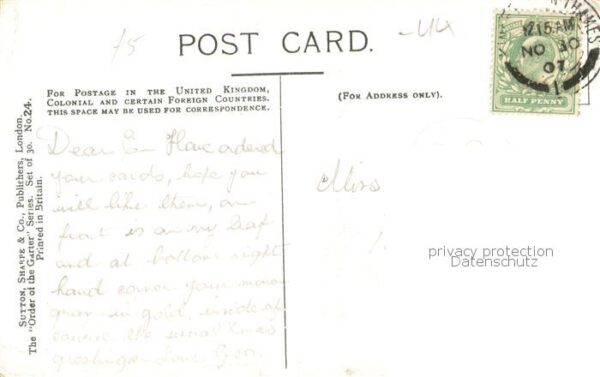 15
POST CARD.
N THAMES
12.15 AM
NO 30
07
1
HALF PENNY
FOR POSTAGE IN THE UNITED KINGDOM,
COLONIAL AND CERTAIN FOREIGN COUNTRIES.
THIS SPACE MAY BE USED FOR CORRESPONDENCE.
(FOR ADDRESS ONLY).
SUTTON, SHARPE & CO., Publishers, London.
The "Order of the Garter" Series. Set of 30. No. 24.
Printed in Britain.
Dear Em Have ordered
your cards, hope you
will like them, on
front is an ivy leaf
and at bottom right
hand corner your mono
gram in gold, inside of
course the usual Xmas
greetings. Love Geo.
Miss
privacy protection
Datenschutz